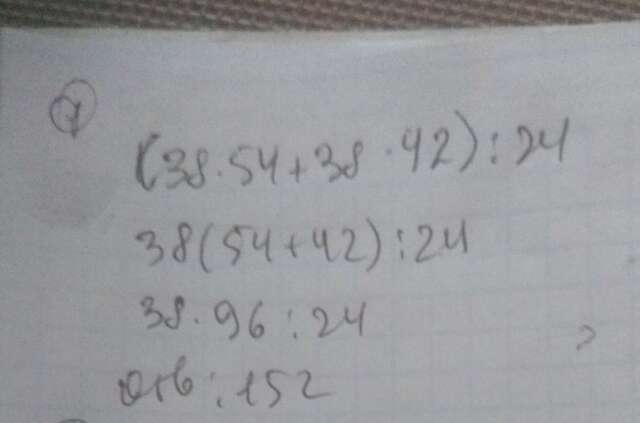 1
(38·54+38·42):24
38(54+42):24
38·96:24
Отв:152